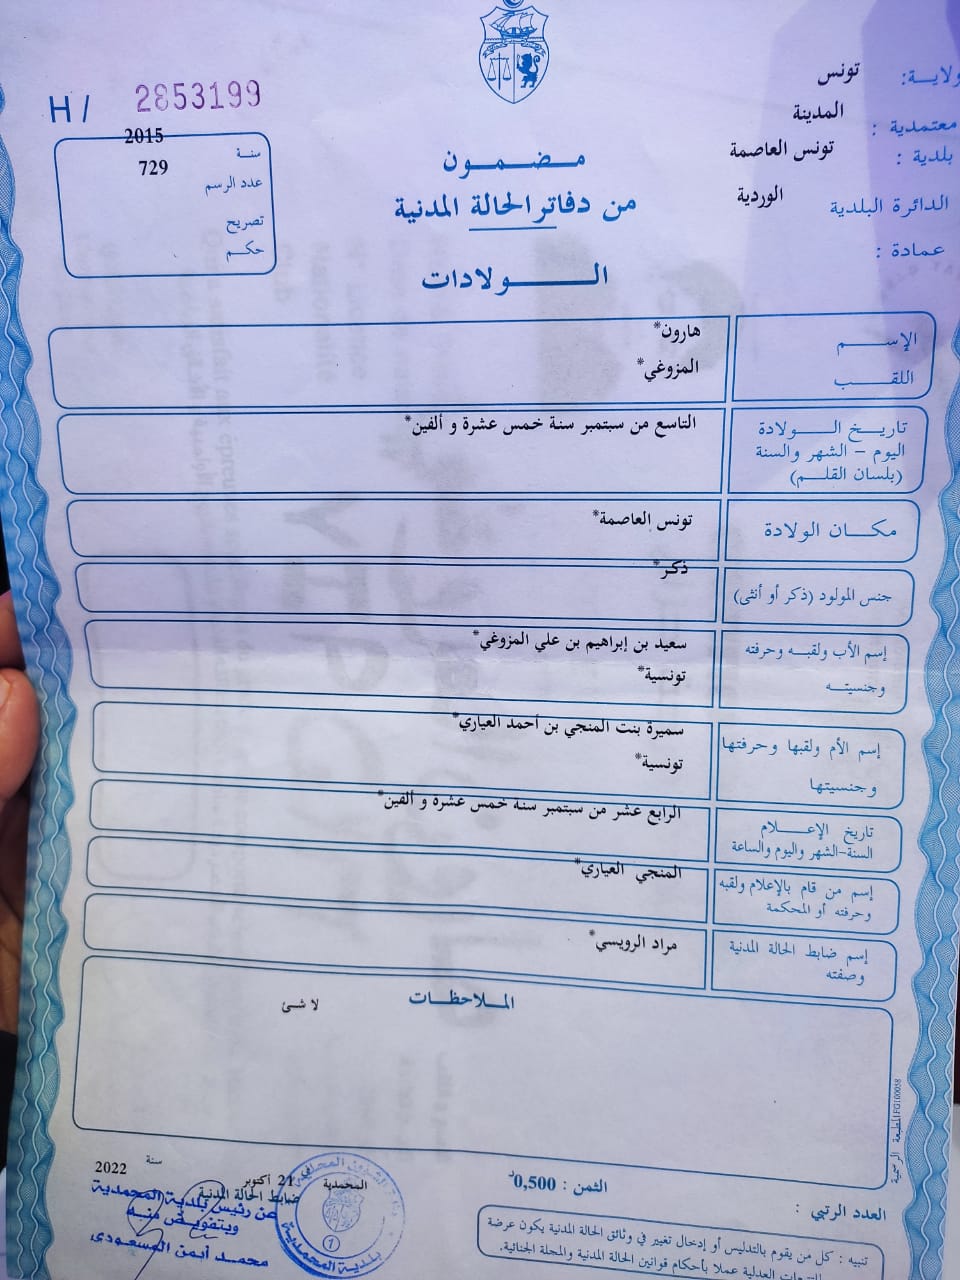 ولاية: تونس
معتمدية : المدينة
بلدية : تونس العاصمة
الدائرة البلدية الوردية
عمادة :
H / 2853199
سنة 2015
عدد الرسم 729
تصريح
حكم
مضمون
من دفاتر الحالة المدنية
الولادات
الإسم هارون*
اللقب المزوغي*
تاريخ الولادة التاسع من سبتمبر سنة خمس عشرة و ألفين*
اليوم - الشهر والسنة
(بلسان القلم)
مكان الولادة تونس العاصمة*
جنس المولود (ذكر أو أنثى) ذكر*
إسم الأب ولقبه وحرفته سعيد بن إبراهيم بن علي المزوغي*
وجنسيته تونسية*
إسم الأم ولقبها وحرفتها سميرة بنت المنجي بن أحمد العياري*
وجنسيتها تونسية*
تاريخ الإعلام الرابع عشر من سبتمبر سنة خمس عشرة و ألفين*
السنة-الشهر واليوم والساعة
إسم من قام بالإعلام ولقبه المنجي العياري*
وحرفته أو المحكمة
إسم ضابط الحالة المدنية مراد الرويسي*
وصفته
الملاحظات
لا شئ
المطبعة الرسمية IFG100058
العدد الرتبي :
الثمن : 0,500د
تنبيه : كل من يقوم بالتدليس أو إدخال تغيير في وثائق الحالة المدنية يكون عرضة
العدلية عملا بأحكام قوانين الحالة المدنية والمجلة الجنائية.
المحمدية 21 أكتوبر سنة 2022
ضابط الحالة المدنية
عن رئيس بلدية المحمدية
وبتفويض منه
محمد أيمن المسعودي
بلدية المحمدية
1